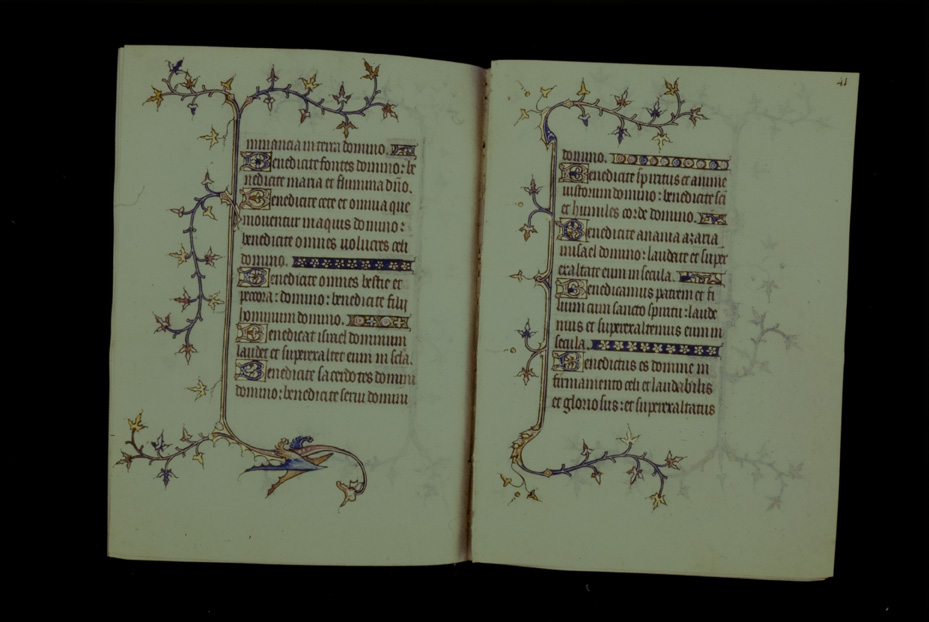 minancia in terra domino.
Benedicite fontes domino: be
nedicite maria et flumina dño.
Benedicite cete et omnia que
moventur in aquis domino:
benedicite omnes volucres celi
domino.
Benedicite omnes bestie et
pecora: domino: benedicite filij
hominum domino.
Benedicat israel dominum
laudet et superexaltet eum in scła.
Benedicite sacerdotes domini
domino: benedicite servi domini
41
domino.
Benedicite spiritus et anime
iustorum domino: benedicite sči
et humiles corde domino.
Benedicite anania azaria
misael domino: laudate et super
exaltate eum in secula.
Benedicamus patrem et fi
lium cum sancto spiritu: laude
mus et superexaltemus eum in
secula.
Benedictus es domine in
firmamento celi et laudabilis
et gloriosus: et superexaltatus